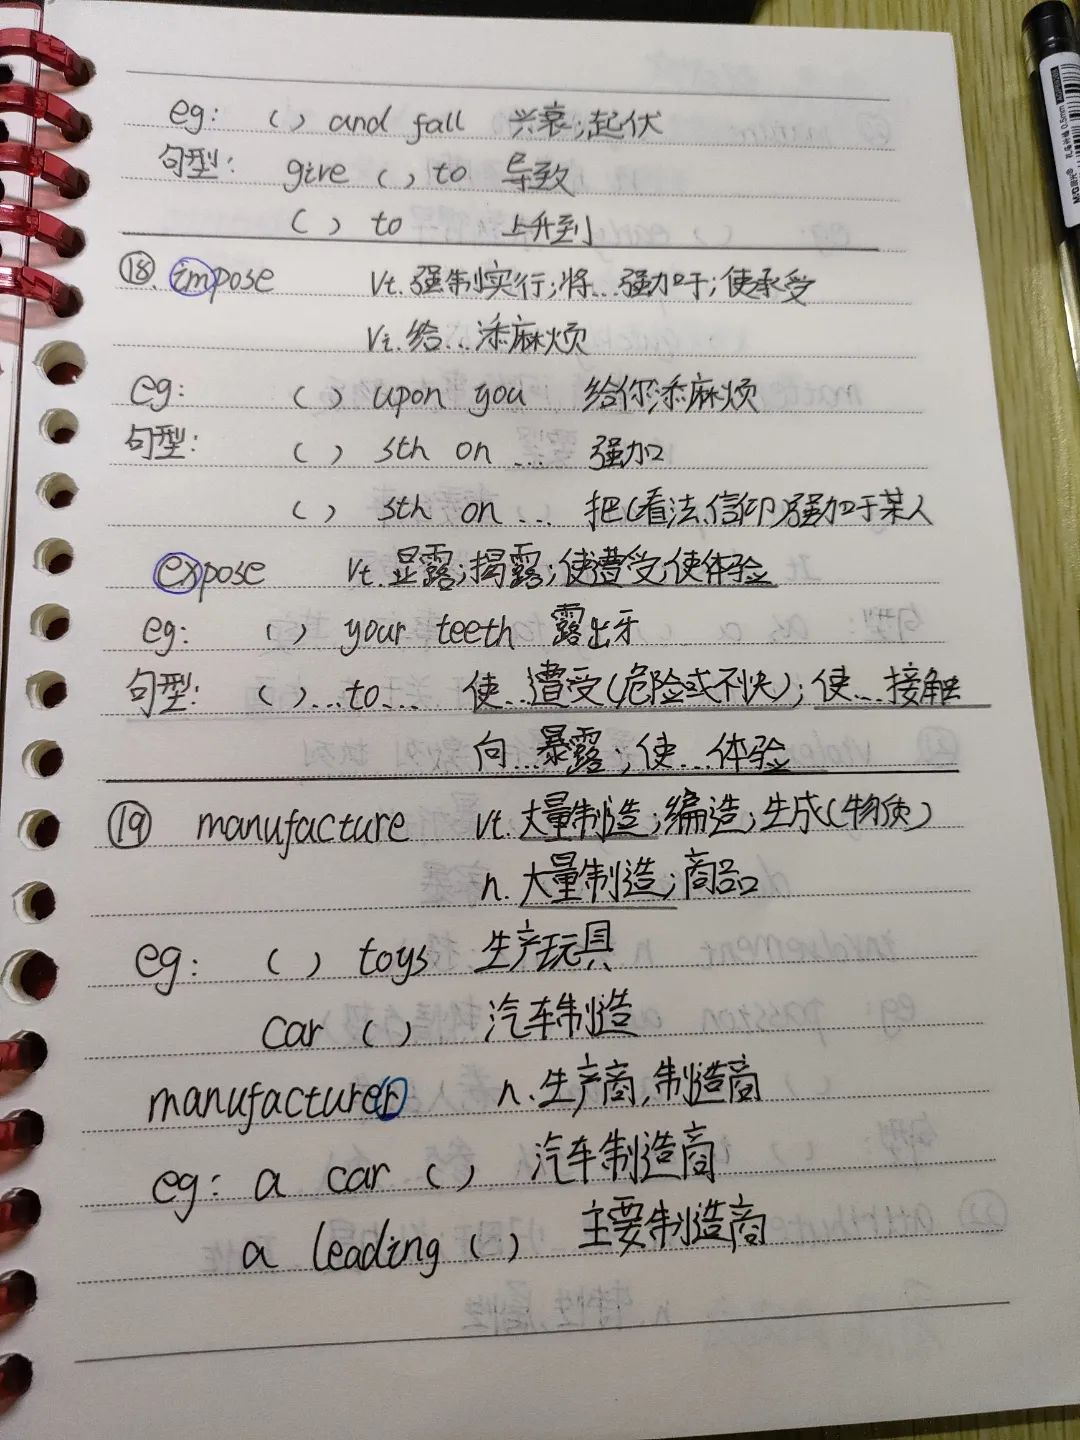 eg: ( ) and fall 兴衰;起伏
句型: give ( ) to 导致
( ) to 上升到
⑱. impose vt.强制实行;将...强加于;使承受
vi.给...添麻烦
eg: ( ) upon you 给你添麻烦
句型: ( ) sth on ... 强加
( ) sth on ... 把(看法、信仰)强加于某人
expose vt.显露;揭露;使遭受;使体验
eg: ( ) your teeth 露出牙
句型: ( )...to... 使...遭受(危险或不快);使...接触
向...暴露;使...体验
⑲ manufacture vt.大量制造;编造;生成(物质)
n.大量制造;商品
eg: ( ) toys 生产玩具
car ( ) 汽车制造
manufacturer n.生产商,制造商
eg: a car ( ) 汽车制造商
a leading ( ) 主要制造商
M&G 晨光 0.5mm